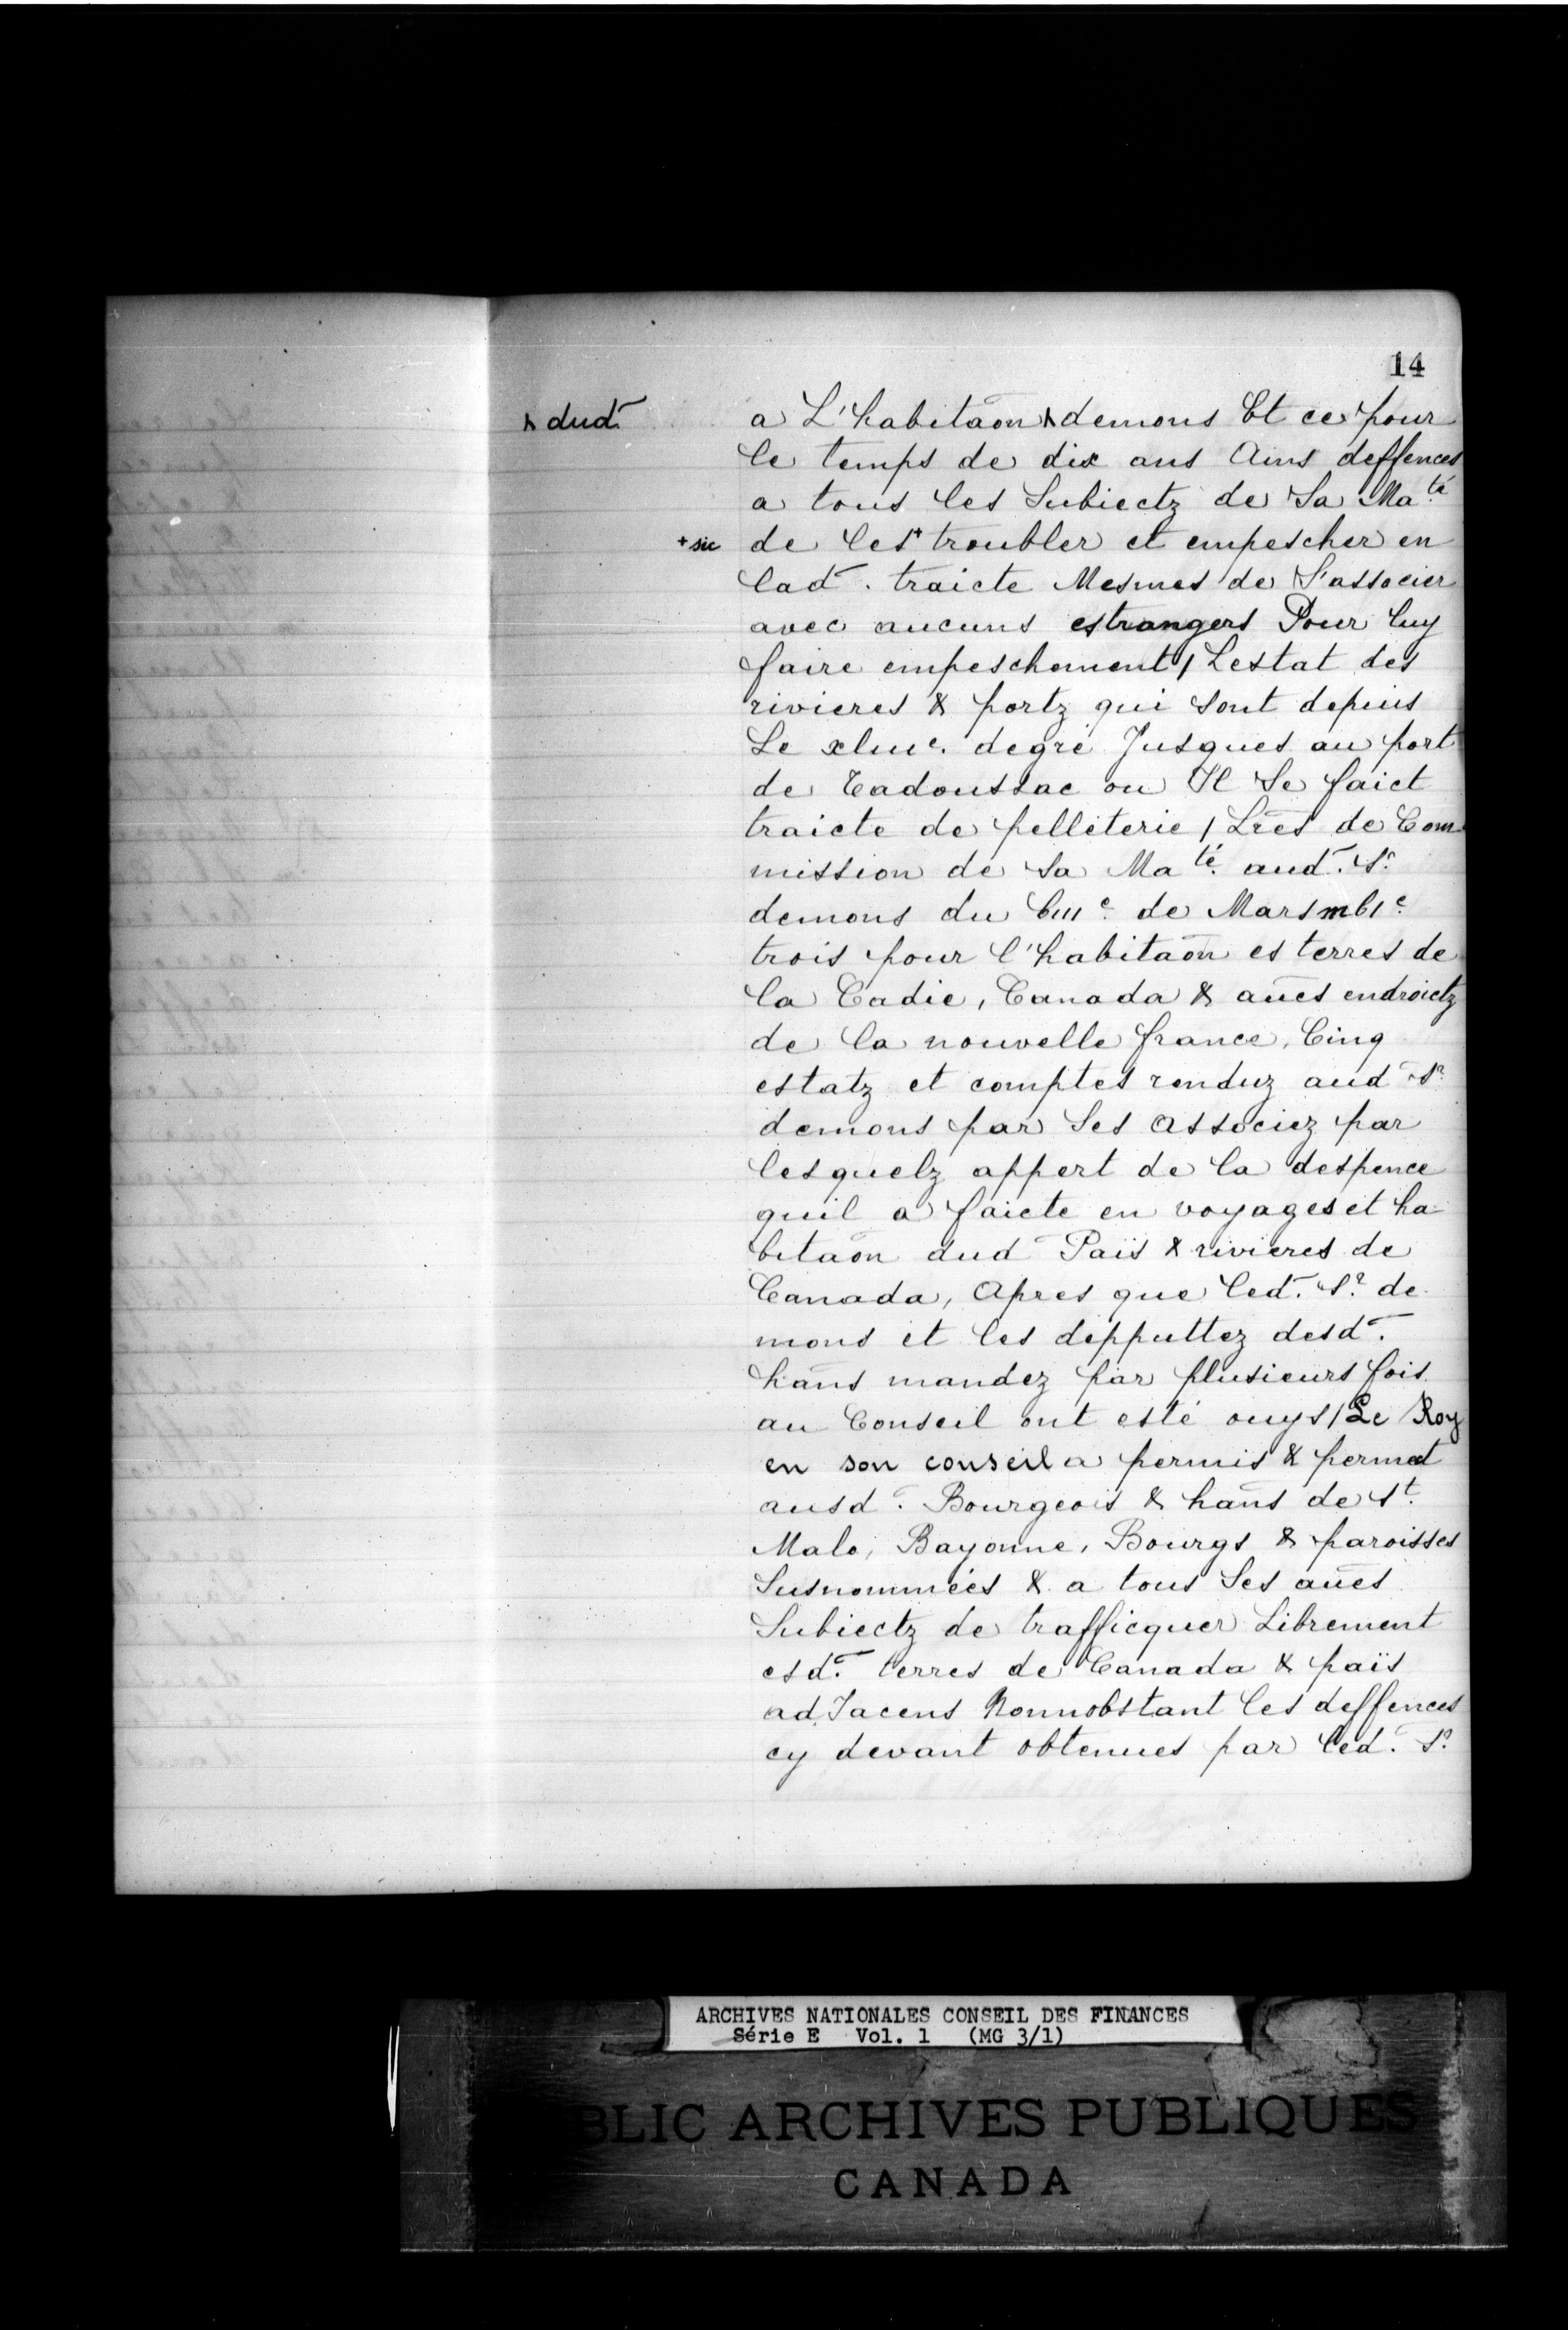 14
× dud.
a L'habitaõn × demons Et ce pour
le temps de dix ans Ains deffences
a tous les Subiectz de Sa Ma.té
+ sic
de les+ troubler et empescher en
lad. traicte Mesmes de S'associer
avec aucuns estrangers Pour luy
faire empeschement / Lestat des
rivieres & portz qui sont depuis
Le xlme. degré Jusques au port
de Tadoussac ou Il Se faict
traicte de pelleterie / Lrẽs de Com-
mission de Sa Ma.té aud. Sr.
demons du buie. de Mars mb1e.
trois pour l'habitaõn es terres de
la Cadie, Canada & aũes endroictz
de la nouvelle france, Cinq
estatz et comptes renduz aud. Sr.
demons par Ses associez par
lesquelz appert de la despence
quil a faicte en voyages et ha-
bitaõn dud. Païs & rivieres de
Canada, Apres que led. Sr. de
mons et les depputtez desd.
hãns mandez par plusieurs fois
au Conseil ont esté ouys / Le Roy
en son conseil a permis & permet
ausd. Bourgeois & hañs de St.
Malo, Bayonne, Bourgs & paroisses
Susnommées & a tous Ses aũes
Subiectz de trafficquer Librement
esd. terres de Canada & païs
ad Jacens Nonnobstant les deffences
cy devant obtenues par led. Sr.
ARCHIVES NATIONALES CONSEIL DES FINANCES
Série E Vol. 1 (MG 3/1)
BLIC ARCHIVES PUBLIQUES
CANADA